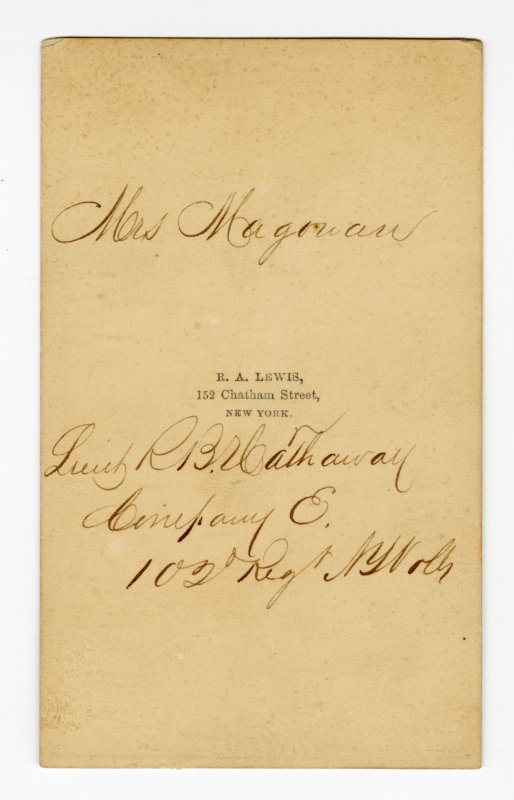 Mrs Magowan
R. A. LEWIS,
152 Chatham Street,
NEW YORK.
Lieut R B. Hathaway
Company E.
102d Regt NYVols